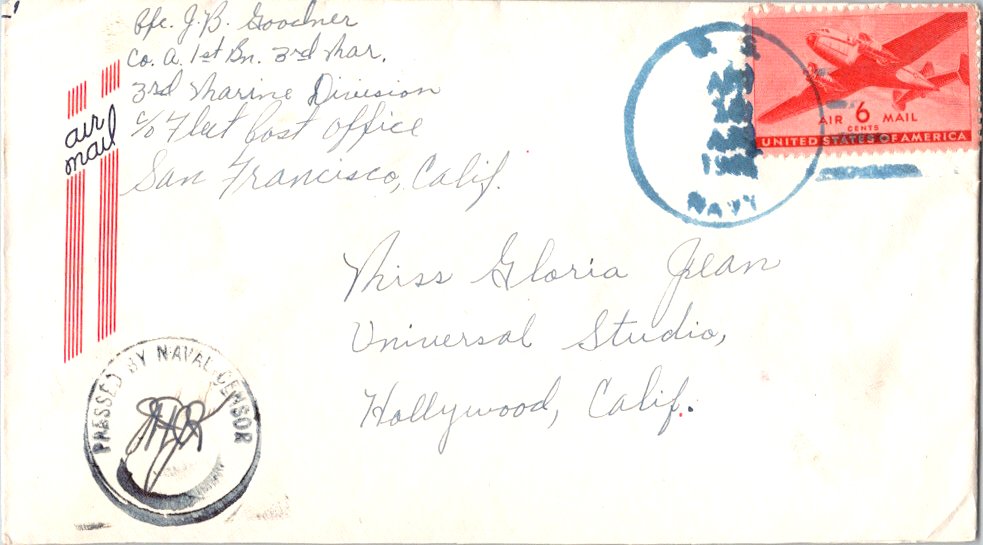 Pfc. J. B. Goodner
Co. A. 1st Bn. 3rd Mar.
3rd Marine Division
c/o Fleet Post Office
San Francisco, Calif.
air
mail
U. S.
NAVY
AIR 6 MAIL
CENTS
UNITED STATES OF AMERICA
Miss Gloria Jean
Universal Studio,
Hollywood, Calif.
PASSED BY NAVAL CENSOR